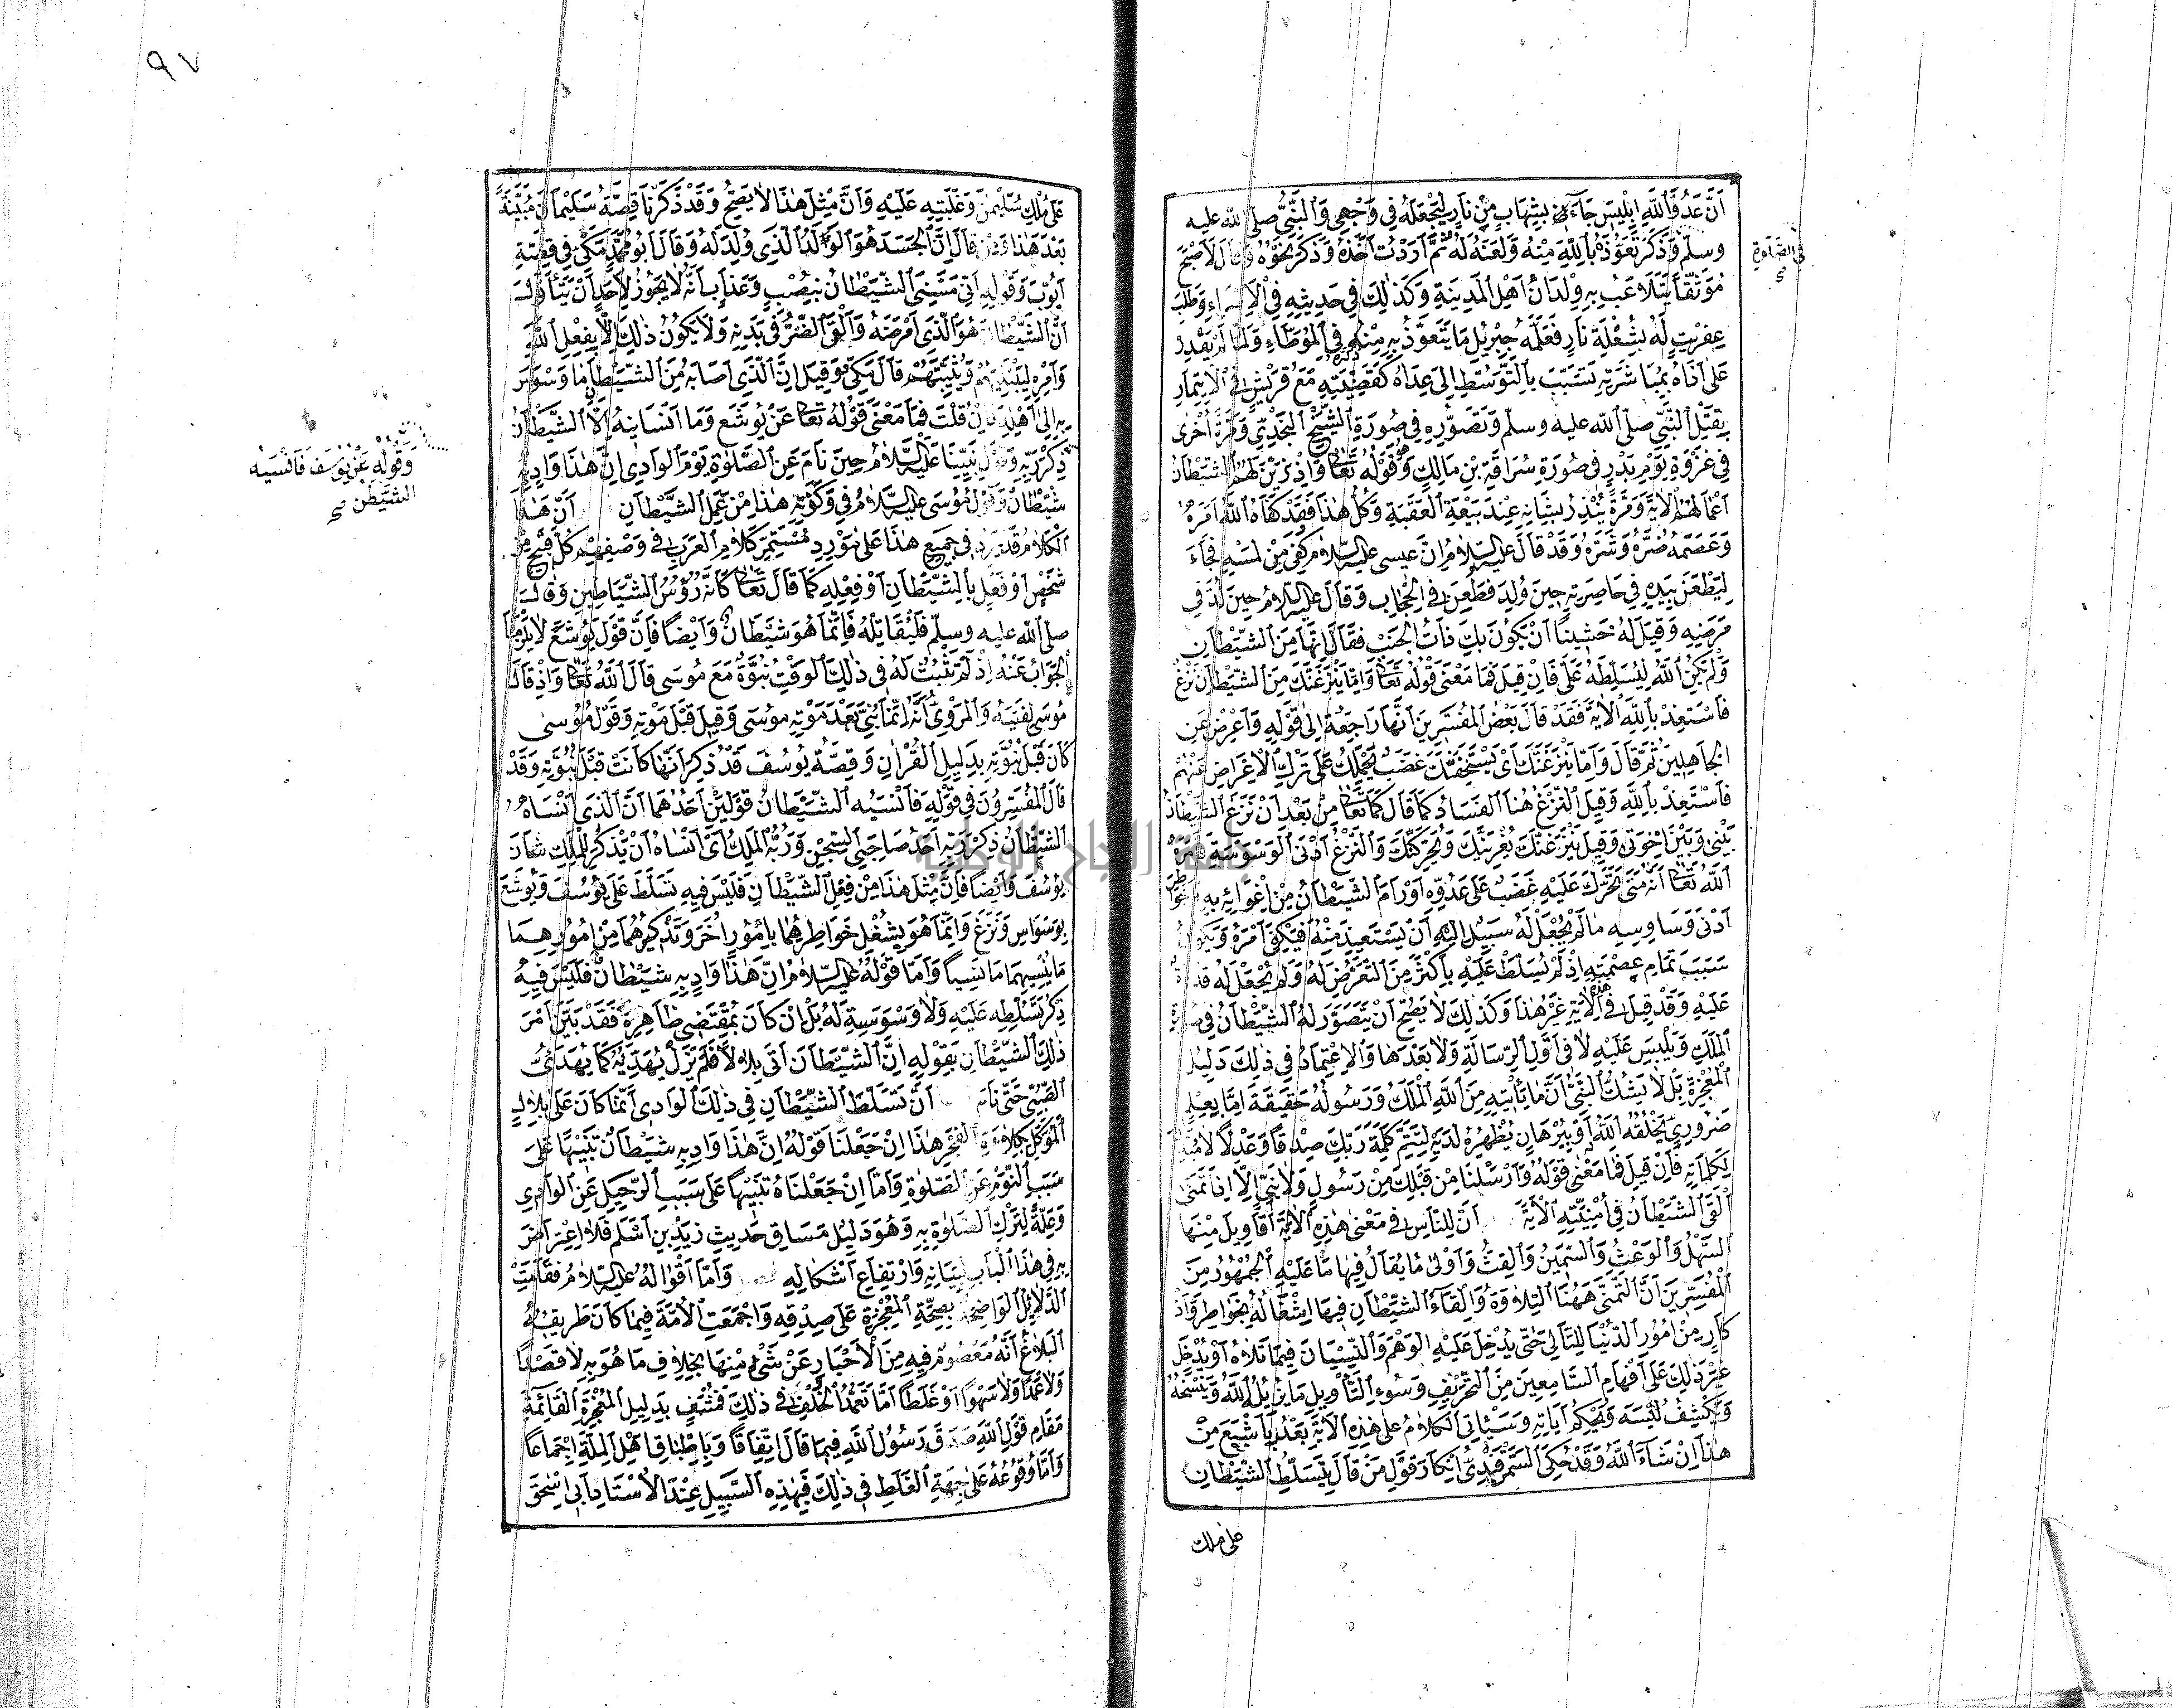 أن عدو الله إبليس جاءني بشهاب من نار ليجعله في وجهي والنبي صلى الله عليه
في الصلوة صح
وسلم وذكر تعوذه بالله منه ولعنه له ثم أردت آخذه وذكر نحوه وقال لأصبح
موثقا يتلاعب به ولدان أهل المدينة وكذلك في حديثه في الإسراء وطلب
عفريت له بشعلة نار فعلمه جبريل ما يتعوذ به منه ذكره في الموطاء ولما لم يقدر
على أذاه بمباشرته تسبب بالتوسط إلى عداه كقضيته مع قريش في الايتمار
بقتل النبي صلى الله عليه وسلم وتصوره في صورة الشيخ النجدي ومرة أخرى
في غزوة يوم بدر في صورة سراقة بن مالك وهو قوله تعالى وإذ زين لهم الشيطان
أعمالهم الآية ومرة ينذر بشانه عند بيعة العقبة وكل هذا فقد كفاه الله أمره
وعصمه ضره وشره وقد قال عليه السلام إن عيسى عليه السلام كفي من لمسه فجاء
ليطعن بيده في خاصرته حين ولد فطعن في الحجاب وقال عليه السلام حين لد في
مرضه وقيل له خشينا أن يكون بك ذات الجنب فقال إنها من الشيطان
ولم يكن الله ليسلطه علي فإن قيل فما معنى قوله تعالى وإما ينزغنك من الشيطان نزغ
فاستعذ بالله الآية فقد قال بعض المفسرين أنها راجعة إلى قوله وأعرض عن
الجاهلين ثم قال وإما ينزغنك أي يستخفنك غضب يحملك على ترك الإعراض عنهم
فاستعذ بالله وقيل النزغ هنا الفساد كما قال كما تعالى من بعد أن نزغ الشيطان
بيني وبين إخوتي وقيل ينزغنك يغرينك ويحركنك والنزغ أدنى الوسوسة فأمره
الله تعالى أنه متى تحرك عليه غضب على عدوه أو رام الشيطان من إغوائه به وخواطر
أدنى وساوسه ما لم يجعل له سبيل إليه أن يستعيذ منه فيكفى أمره ويكون
سبب تمام عصمته إذ لم يسلط عليه بأكثر من التعرض له ولم يجعل له قدرة
عليه وقد قيل في هذه الآية غير هذا وكذلك لا يصح أن يتصور له الشيطان في صورة
الملك ويلبس عليه لا في أول الرسالة ولا بعدها والاعتماد في ذلك دليل
المعجزة بل لا يشك النبي أن ما يأتيه من الله الملك ورسوله حقيقة إما بعلم
ضروري يخلقه الله أو ببرهان يظهره لديه لتتم كلمة ربك صدقا وعدلا لا مبدل
لكلماته فإن قيل فما معنى قوله وما أرسلنا من قبلك من رسول ولا نبي إلا إذا تمنى
ألقى الشيطان في أمنيته الآية أن للناس في معنى هذه الآية أقاويل منها
السهل والوعث والسمين والغث وأولى ما يقال فيها ما عليه الجمهور من
المفسرين أن التمني ههنا التلاوة وإلقاء الشيطان فيها إشغاله بخواطر وأذ
كار من أمور الدنيا للتالي حتى يدخل عليه الوهم والنسيان فيما تلاه أو يدخل
غير ذلك على أفهام السامعين من التحريف وسوء التأويل ما يزيله الله وينسخه
ويكشف لبسه ويحكم آياته وسيأتي الكلام على هذه الآية بعد بأشبع من
هذا إن شاء الله وقد حكى السمرقندي إنكار قول من قال بتسلط الشيطان
على ملك
٩٧
على ملك سليمن وغلبته عليه وأن مثل هذا لا يصح وقد ذكرنا قصة سليمان مبينة
بعد هذا ومن قال إن الجسد هو الولد الذي ولد له وقال أبو محمد مكي في قصة
أيوب وقوله أني مسني الشيطان بنصب وعذاب أنه لا يجوز لأحد أن يتأول
أن الشيطان هو الذي أمرضه وألقى الضر في بدنه ولا يكون ذلك إلا بفعل الله
وأمره ليبتليهم ويثيبهم قال مكي وقيل إن الذي أصابه من الشيطان ما وسوس
به إلى أهله فإن قلت فما معنى قوله تعالى عن يوشع وما أنسانيه إلا الشيطان
وقوله عن يوسف فأنسيه
الشيطن صح
ذكر ربه وقول نبينا عليه السلام حين نام عن الصلوة يوم الوادي إن هذا واد به
شيطان وقول موسى عليه السلام في وكزته هذا من عمل الشيطان أن هذا
الكلام قد يرد في جميع هذا على مورد مستمر كلام العرب في وصفهم كل قبيح من
شخص أو فعل بالشيطان أو فعله كما قال تعالى كأنه رؤس الشياطين وقال
صلى الله عليه وسلم فليقاتله فإنما هو شيطان وأيضا فإن قول يوشع لا يلزمنا
الجواب عنه إذ لم تثبت له في ذلك الوقت نبوة مع موسى قال الله تعالى وإذ قال
موسى لفتيه والمروي أنه إنما نبئ بعد موت موسى وقيل قبل موته وقول موسى
كان قبل نبوته بدليل القرآن وقصة يوسف قد ذكر أنها كانت قبل نبوته وقد
قال المفسرون في قوله فأنسيه الشيطان قولين أحدهما أن الذي أنساه
الشيطان ذكر ربه أحد صاحبي السجن وربه الملك أي أنساه أن يذكر للملك شان
يوسف وأيضا فإن مثل هذا من فعل الشيطان فليس فيه تسلط على يوسف ويوشع
بوسواس ونزغ وإنما هو بشغل خواطرهما بأمور أخر وتذكيرهما من أمورهما
ما ينسيهما ما نسيا وأما قوله عليه السلام إن هذا واد به شيطان فليس فيه
ذكر تسلطه عليه ولا وسوسة له بل إن كان بمقتضى ظاهره فقد بين أمر
ذلك الشيطان بقوله إن الشيطان أتى بلالا فلم يزل يهديه كما يهدى
الصبي حتى نام أن تسلط الشيطان في ذلك الوادي إنما كان على بلال
الموكل بكلاءة الفجر هذا إن جعلنا قوله إن هذا واد به شيطان تنبيها على
سبب النوم عن الصلوة وأما إن جعلناه تنبيها على سبب الرحيل عن الوادي
وعلة لترك الصلوة به وهو دليل مساق حديث زيد بن أسلم فلا اعتراض
به في هذا الباب لبيانه وارتفاع أشكاله وأما أقواله عليه السلام فقامت
الدلائل الواضحة بصحة المعجزة على صدقه وأجمعت الأمة فيما كان طريقه
البلاغ أنه معصوم فيه من الأخبار عن شيء منها بخلاف ما هو به لا قصدا
ولا عمدا ولا سهوا أو غلطا أما تعمد الخلف في ذلك فمنتف بدليل المعجزة القائمة
مقام قول الله صدق رسول الله فيما قال اتفاقا وبإطباق أهل الملة إجماعا
وأما وقوعه على جهة الغلط في ذلك فبهذه السبيل عند الأستاد أبي إسحق
جامعة النجاح الوطنية